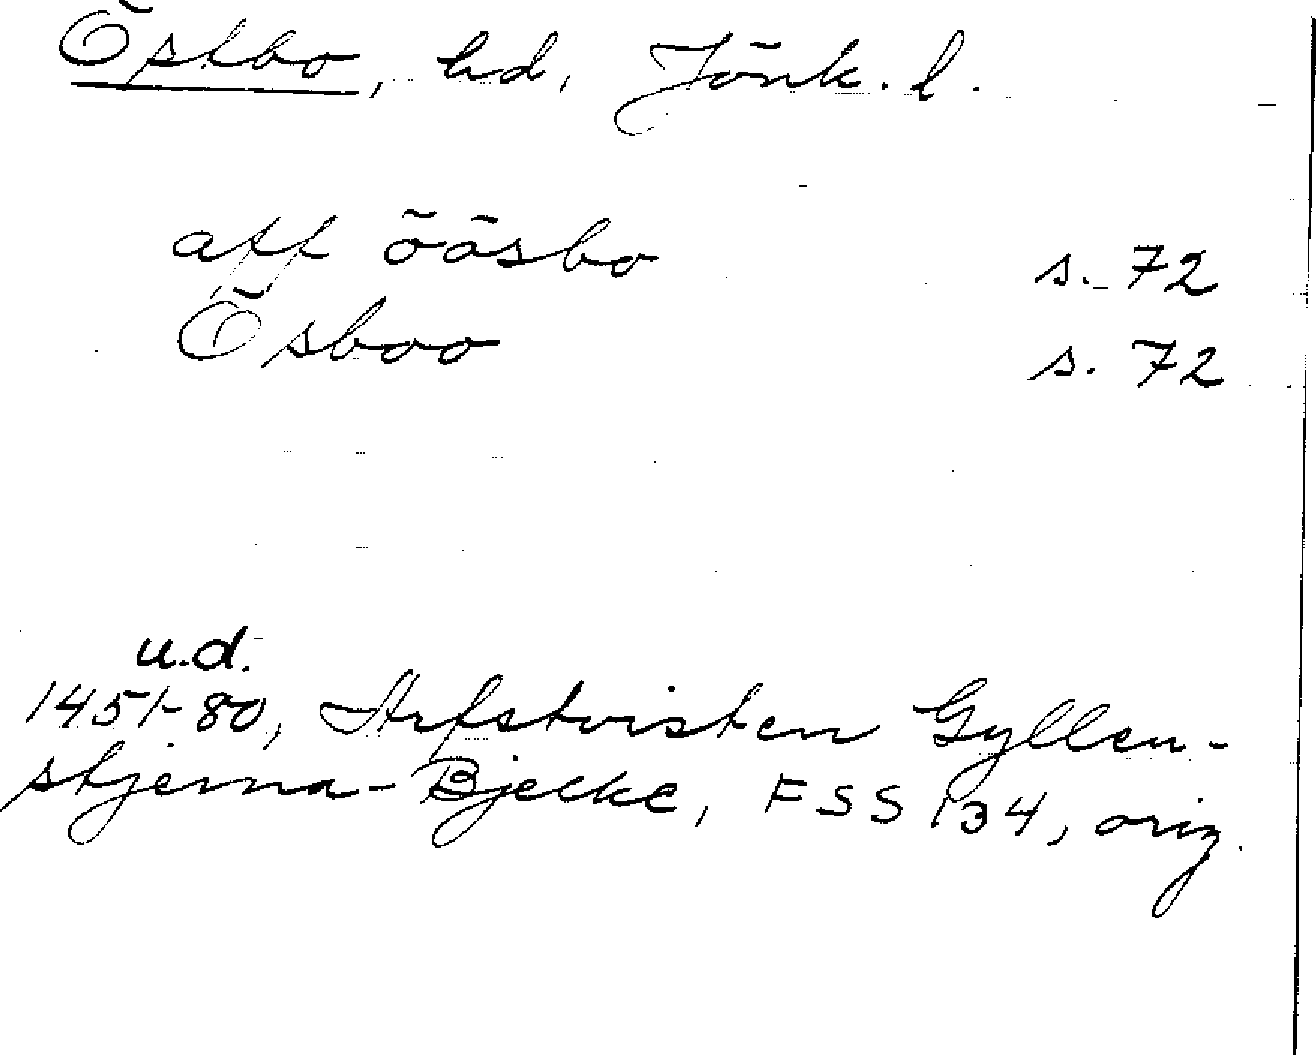 Östbo, hd, Jönk. l.
aff öösbo s. 72
Ösboo s. 72
u.d.
1451-80, Arfstvisten Gyllen-
stjerna-Bjelke, FSS 134, orig.